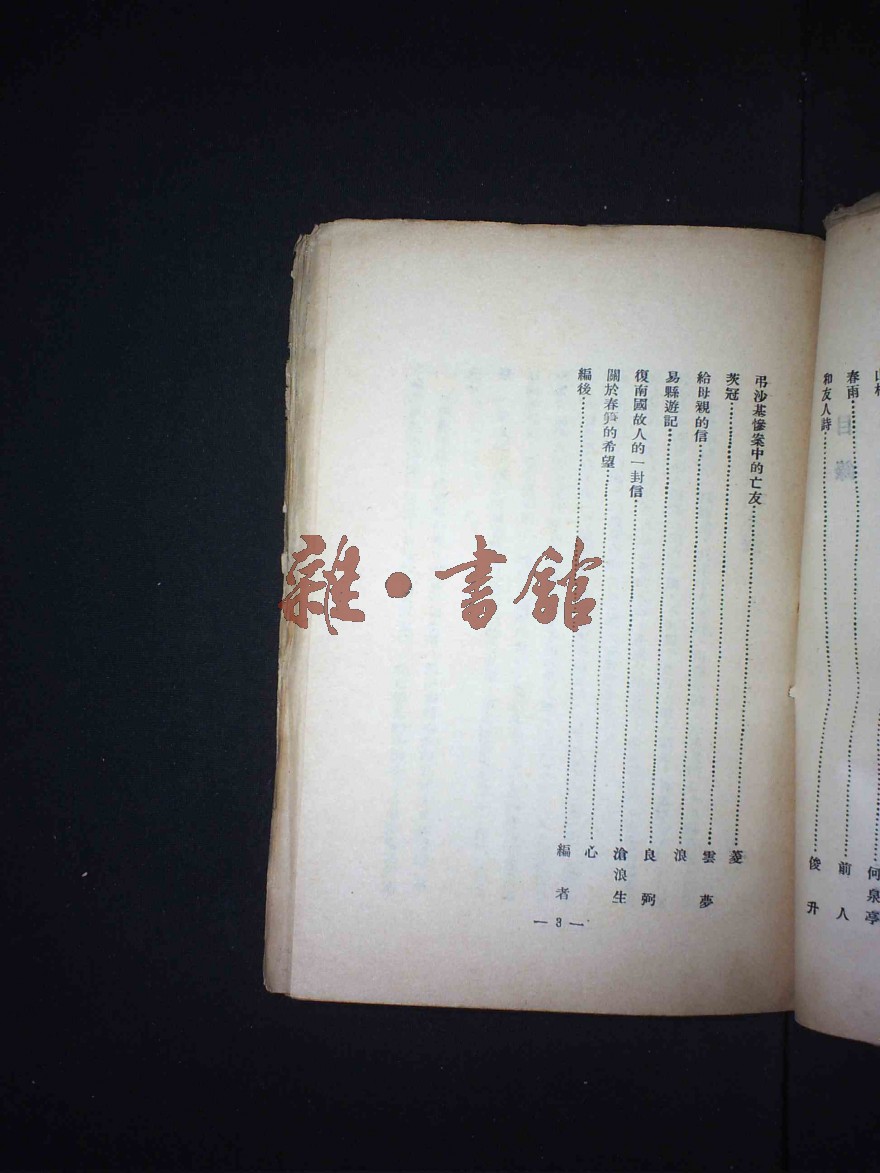 何泉亭
春雨……前人
和友人詩……俊升
弔沙基慘案中的亡友……菱
茨冠……雲夢
給母親的信……浪
易縣遊記……良弼
復南國故人的一封信……滄浪生
關於春筍的希望……心
編後……編者
— 3 —
雜・書館